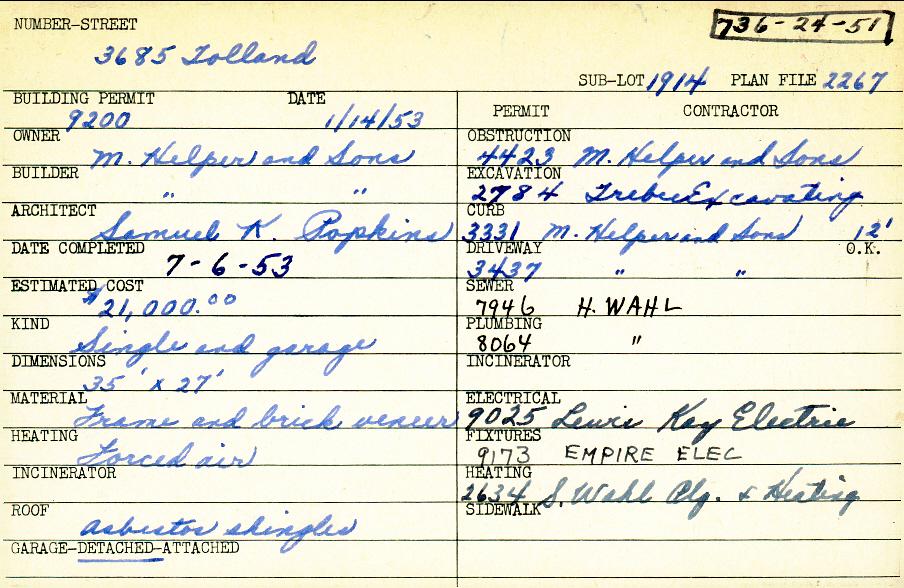 NUMBER-STREET
736-24-51
3685 Tolland
SUB-LOT 1914 PLAN FILE 2267
BUILDING PERMIT DATE
9200 1/14/53
OWNER
M. Helper and Sons
BUILDER
" "
ARCHITECT
Samuel K. Popkins
DATE COMPLETED
7-6-53
ESTIMATED COST
$21,000.00
KIND
Single and garage
DIMENSIONS
35' x 27'
MATERIAL
Frame and brick veneer
HEATING
Forced air
INCINERATOR
ROOF
asbestos shingles
GARAGE-DETACHED-ATTACHED
PERMIT CONTRACTOR
OBSTRUCTION
4423 M. Helper and Sons
EXCAVATION
2784 Excavating
CURB
3331 M. Helper and Sons 12'
DRIVEWAY O.K.
3437 " "
SEWER
7946 H. WAHL
PLUMBING
8064 "
INCINERATOR
ELECTRICAL
9025 Lewis Kay Electric
FIXTURES
9173 EMPIRE ELEC
HEATING
2634 S. Wahl Plg. & Heating
SIDEWALK